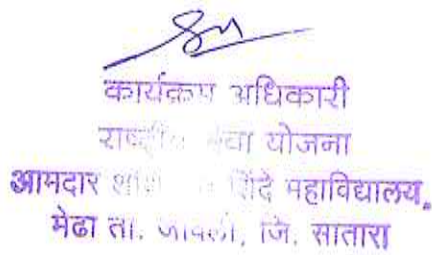 कार्यक्रम अधिकारी
योजना
आमदार शिंदे महाविद्यालय,
मेढा ता. जावली, जि. सातारा